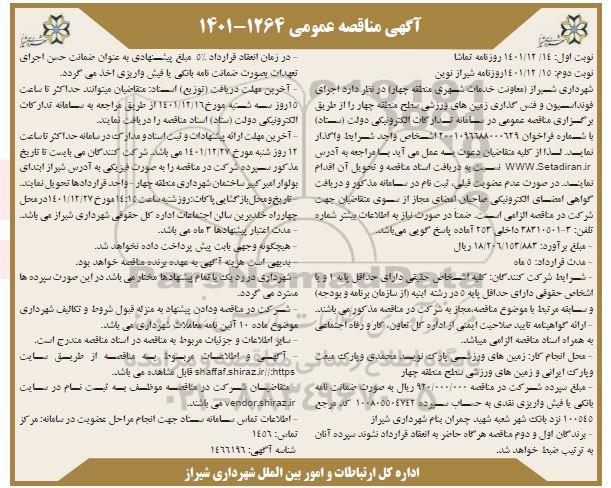 آگهی مناقصه عمومی ۱۲۶۴-۱۴۰۱
نوبت اول: ۱۴۰۱/۱۲/۱۴ روزنامه تماشا
نوبت دوم: ۱۴۰۱/۱۲/۱۵ روزنامه شیراز نوین
شهرداری شیراز (معاونت خدمات شهری منطقه چهار) در نظر دارد اجرای
فونداسیون و فنس گذاری زمین های ورزشی سطح منطقه چهار را از طریق
برگزاری مناقصه عمومی در سامانه تدارکات الکترونیکی دولت (ستاد)
با شماره فراخوان ۲۰۰۱۰۹۶۶۸۸۰۰۰۶۲۹ اشخاص واجد شرایط واگذار
نماید. لذا از کلیه متقاضیان دعوت به عمل می آید با مراجعه به آدرس
WWW.Setadiran.ir نسبت به دریافت اسناد مناقصه و تحویل آن اقدام
نمایند. در صورت عدم عضویت قبلی، ثبت نام در سامانه مذکور و دریافت
گواهی امضای الکترونیکی صاحبان امضای مجاز از سوی متقاضیان جهت
شرکت در مناقصه الزامی است. ضمنا در صورت نیاز به اطلاعات بیشتر شماره
تلفن: ۳-۳۸۳۱۰۵۰۱ داخلی ۲۵۳ آماده پاسخ گویی می‌باشد.
- مبلغ برآورد: ۱۸/۲۰۶/۱۵۳/۸۸۳ ریال
- مدت قرارداد: ۵ ماه
- شرایط شرکت کنندگان: کلیه اشخاص حقیقی دارای حداقل پایه ۱ و یا
اشخاص حقوقی دارای حداقل پایه ۵ در رشته ابنیه (از سازمان برنامه و بودجه)
و سابقه مرتبط با موضوع مناقصه، مجاز به شرکت در مناقصه مذکور می باشند.
- ارائه گواهینامه تایید صلاحیت ایمنی از اداره کل تعاون، کار و رفاه اجتماعی
به همراه اسناد مناقصه الزامی میباشد.
- محل انجام کار: زمین های ورزشی پارک نوید محمدی و پارک میعث
و پارک ایرانی و زمین های ورزشی سطح منطقه چهار
- مبلغ سپرده شرکت در مناقصه ۹۲۰/۰۰۰/۰۰۰ ریال به صورت ضمانت نامه
بانکی یا فیش واریزی نقدی به حساب سپرده ۱۰۰۸۰۵۵۰۴۷۴۲ کد مرجع
۱۰۰۵۴۵ نزد بانک شهر شعبه شهید چمران بنام شهرداری شیراز
- برندگان اول و دوم مناقصه هرگاه حاضر به انعقاد قرارداد نشوند سپرده آنان
به ترتیب ضبط خواهد شد.
- در زمان انعقاد قرارداد ۵% مبلغ پیشنهادی به عنوان ضمانت حسن اجرای
تعهدات بصورت ضمانت نامه بانکی یا فیش واریزی اخذ می گردد.
- آخرین مهلت دریافت (توزیع) اسناد: متقاضیان میتوانند حداکثر تا ساعت
۱۵ روز سه شنبه مورخ ۱۴۰۱/۱۲/۱۶ از طریق مراجعه به سامانه تدارکات
الکترونیکی دولت (ستاد) اسناد مناقصه را دریافت نمایند.
- آخرین مهلت ارائه پیشنهادات و ثبت اسناد و مدارک در سامانه حداکثر تا ساعت
۱۲ روز شنبه مورخ ۱۴۰۱/۱۲/۲۷ می باشد. شرکت کنندگان می بایست تا تاریخ
مذکور سپرده شرکت در مناقصه را به صورت فیزیکی به آدرس شیراز ابتدای
بولوار امیر کبیر ساختمان شهرداری منطقه چهار - واحد قراردادها تحویل نمایند.
- تاریخ و محل بازگشایی پاکات: روز شنبه ساعت ۱۴:۱۵ مورخ ۱۴۰۱/۱۲/۲۷ در محل
چهارراه خلدبرین سالن اجتماعات اداره کل حقوقی شهرداری شیراز می باشد.
- مدت اعتبار پیشنهادها ۳ ماه می باشد.
- هیچگونه وجهی بابت پیش پرداخت داده نخواهد شد.
- بدیهی است هزینه آگهی به عهده برنده مناقصه خواهد بود.
- شهرداری در رد یک یا تمام پیشنهادها مختار می باشد در این صورت سپرده ها
مسترد می گردد.
- شرکت در مناقصه و دادن پیشنهاد به منزله قبول شروط و تکالیف شهرداری
موضوع ماده ۱۰ آئین نامه معاملات شهرداری می باشد.
- سایر اطلاعات و جزئیات مربوط به مناقصه در اسناد مناقصه مندرج است.
- آگهی و اطلاعات مربوط به مناقصه از طریق سایت
https://shaffaf.shiraz.ir/ قابل مشاهده می باشد.
- متقاضیان شرکت در مناقصه موظف به ثبت نام در سایت
vendor.shiraz.ir می باشند.
- اطلاعات تماس سامانه ستاد جهت انجام مراحل عضویت در سامانه: مرکز
تماس: ۱۴۵۶
شناسه آگهی: ۱۴۶۶۱۹۶
اداره کل ارتباطات و امور بین الملل شهرداری شیراز